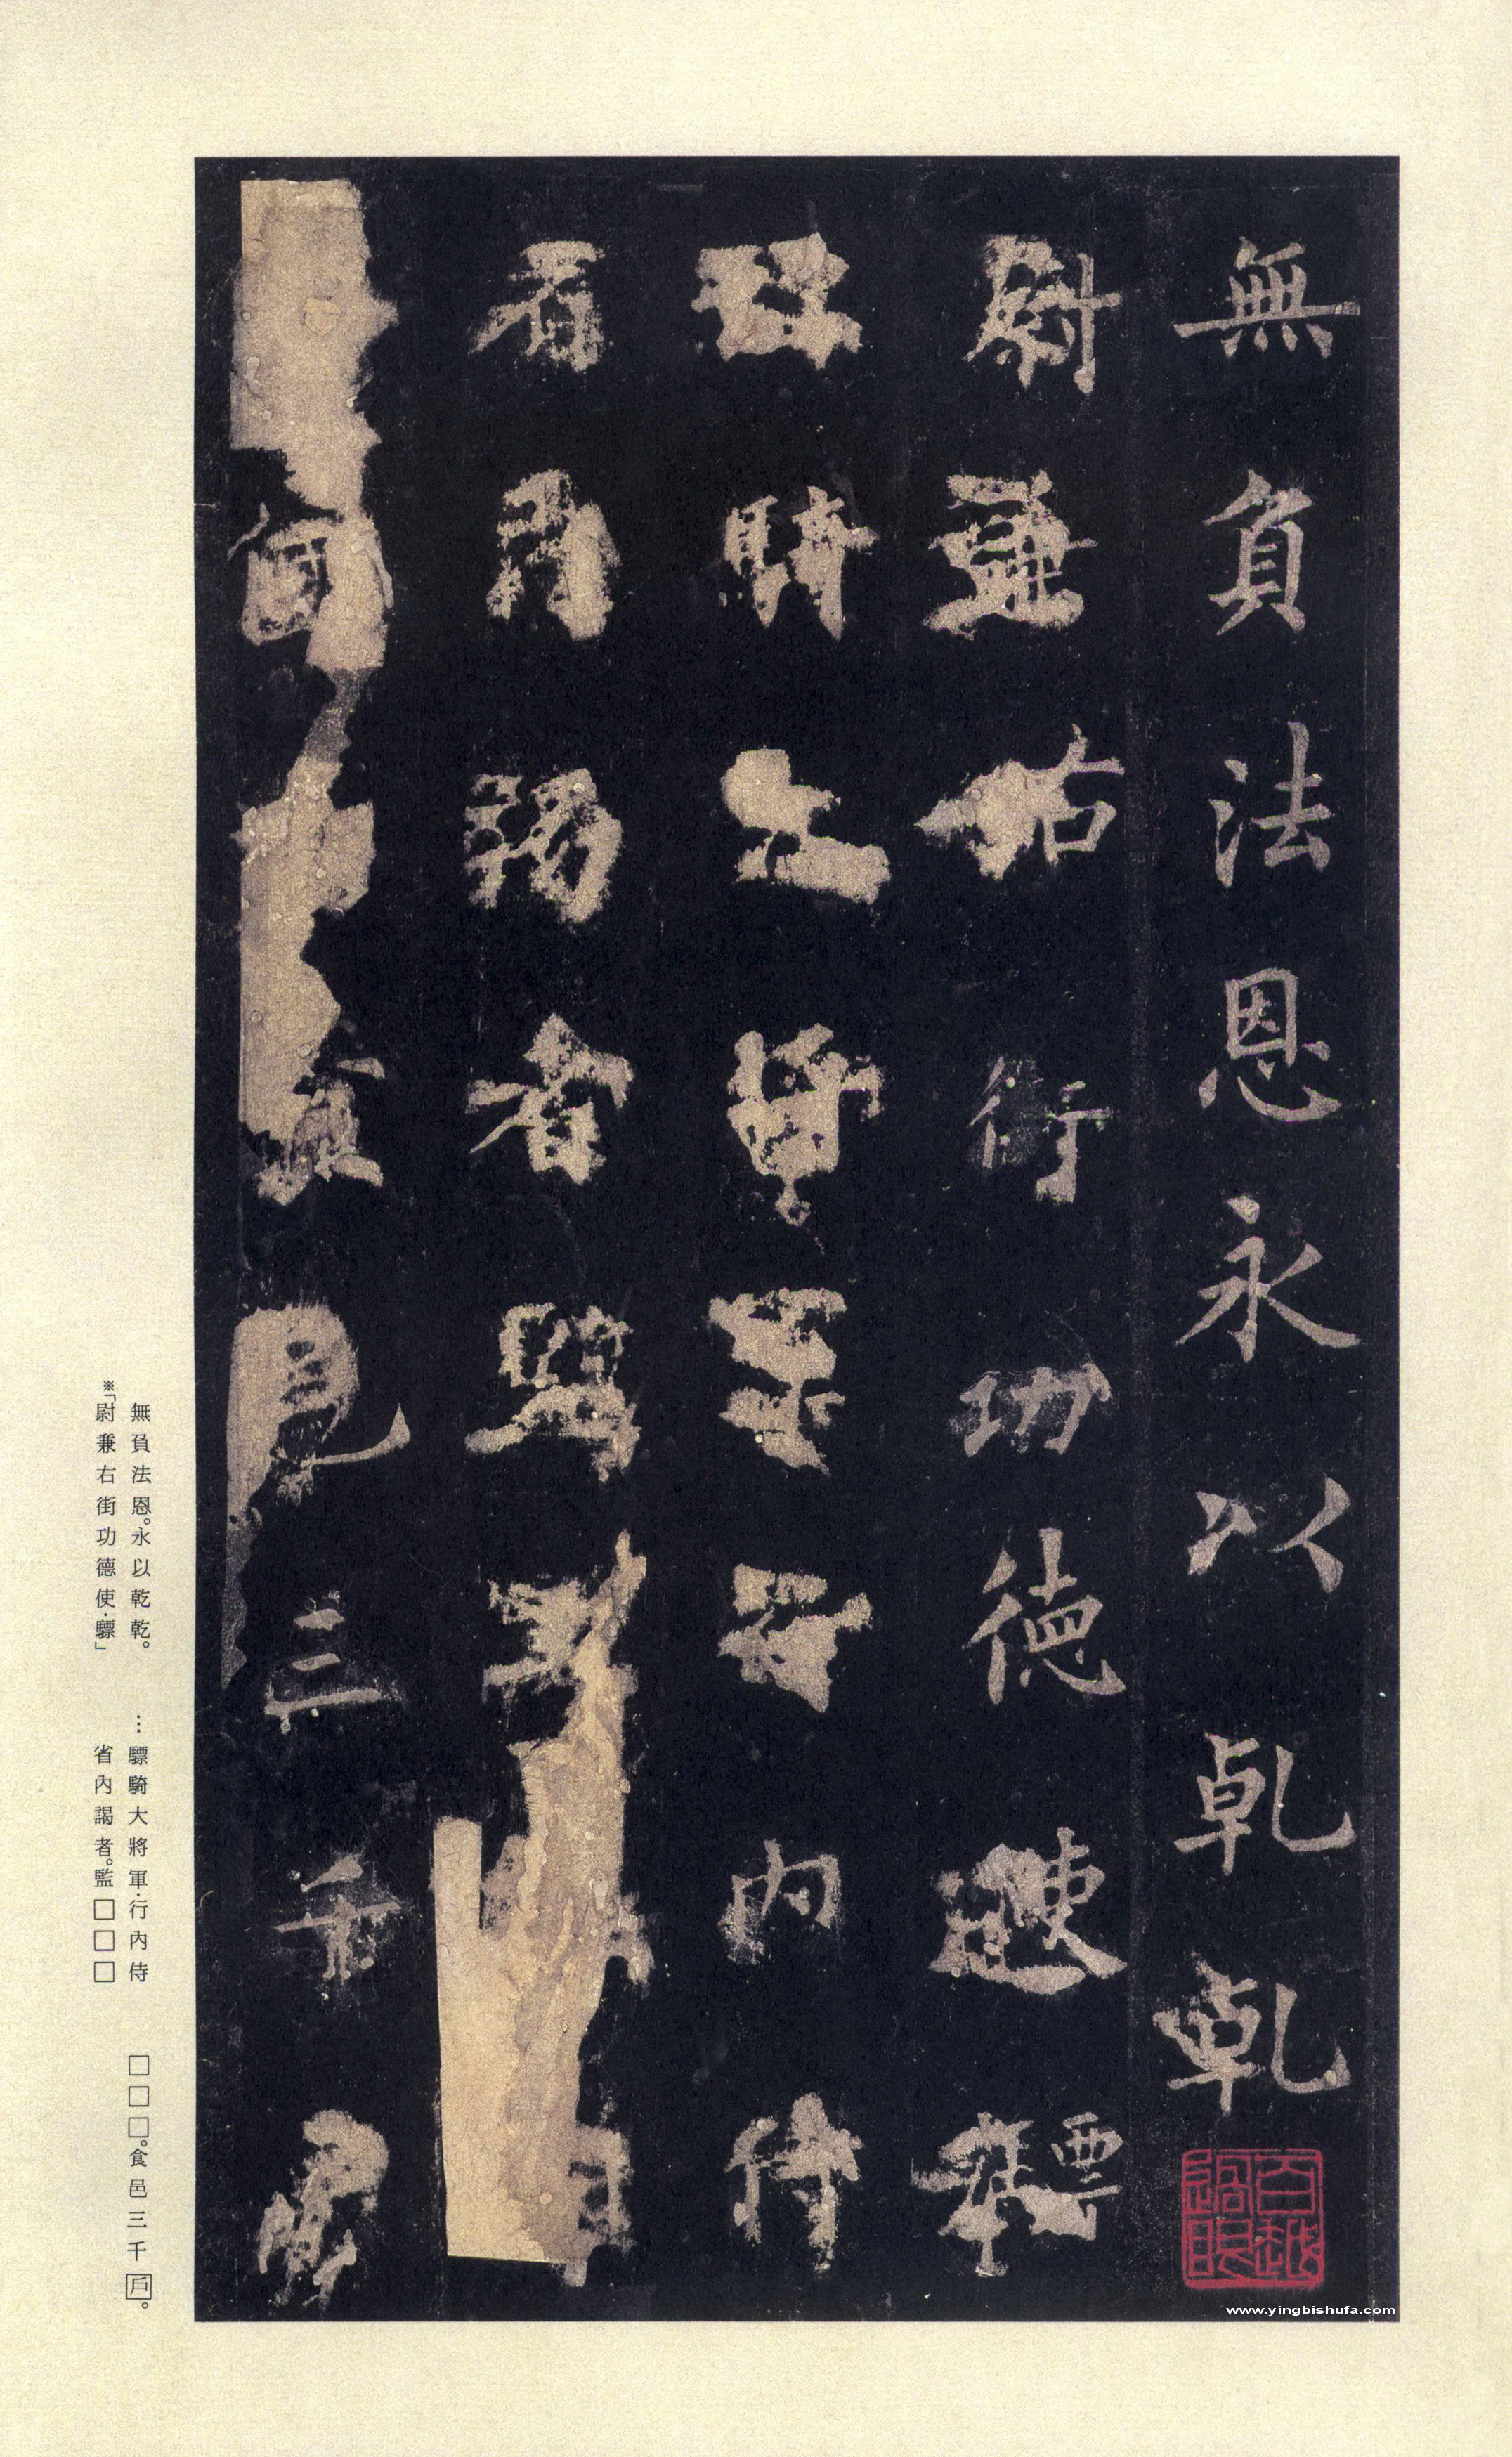 無負法恩永以乾乾
尉兼右街功德使驃
騎大將軍行內侍
省內謁者監
食邑三千
百越過眼
www.yingbishufa.com
無負法恩。永以乾乾。
※「尉兼右街功德使·驃」
…驃騎大將軍·行內侍
省內謁者。監□□□
□□□。食邑三千戶。